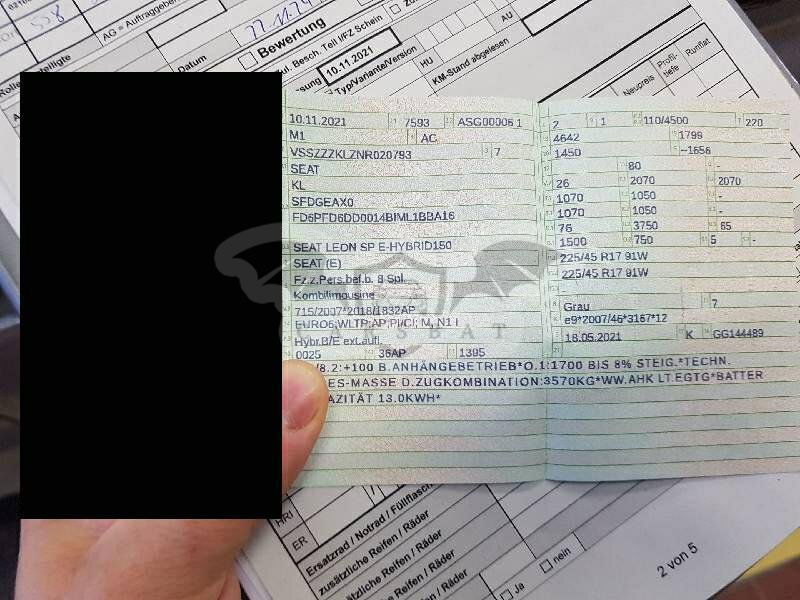 AG = Auftraggeber
22.11.24
Datum
Bewertung
Zul. Besch. Teil I/FZ Schein
10.11.2021
Typ/Variante/Version
HU
AU
KM-Stand abgelesen
Neupreis
Profil-
tiefe
Runflat
10.11.2021 7593 ASG00006 1
M1 AC
VSSZZZKLZNR020793 7
SEAT
KL
SFDGEAX0
FD6PFD6DD0014BIML1BBA16
SEAT LEON SP E-HYBRID150
SEAT (E)
Fz.z.Pers.bef.b. 8 Spl.
Kombilimousine
715/2007*2018/1832AP
EURO6;WLTP;AP;PI/CI; M, N1 I
Hybr.B/E extAufl.
0025 36AP 1395
2 1 110/4500 220
4642 1799
1450 –1656
80 -
26 2070 2070
1070 1050 -
1070 1050 -
76 3750 65
1500 750 5 -
225/45 R17 91W
225/45 R17 91W
Grau 7
e9*2007/46*3167*12
18.05.2021 K GG144489
/8.2:+100 B.ANHÄNGEBETRIEB*O.1:1700 BIS 8% STEIG.*TECHN.
ES-MASSE D.ZUGKOMBINATION:3570KG*WW.AHK LT.EGTG*BATTER
AZITÄT 13.0KWH*
CARSBAT
HRI
ER
Ersatzrad / Notrad / Füllflasch
zusätzliche Reifen / Räder
zusätzliche Reifen / Räder
Reifen / Räder
Ja
nein
2 von 5